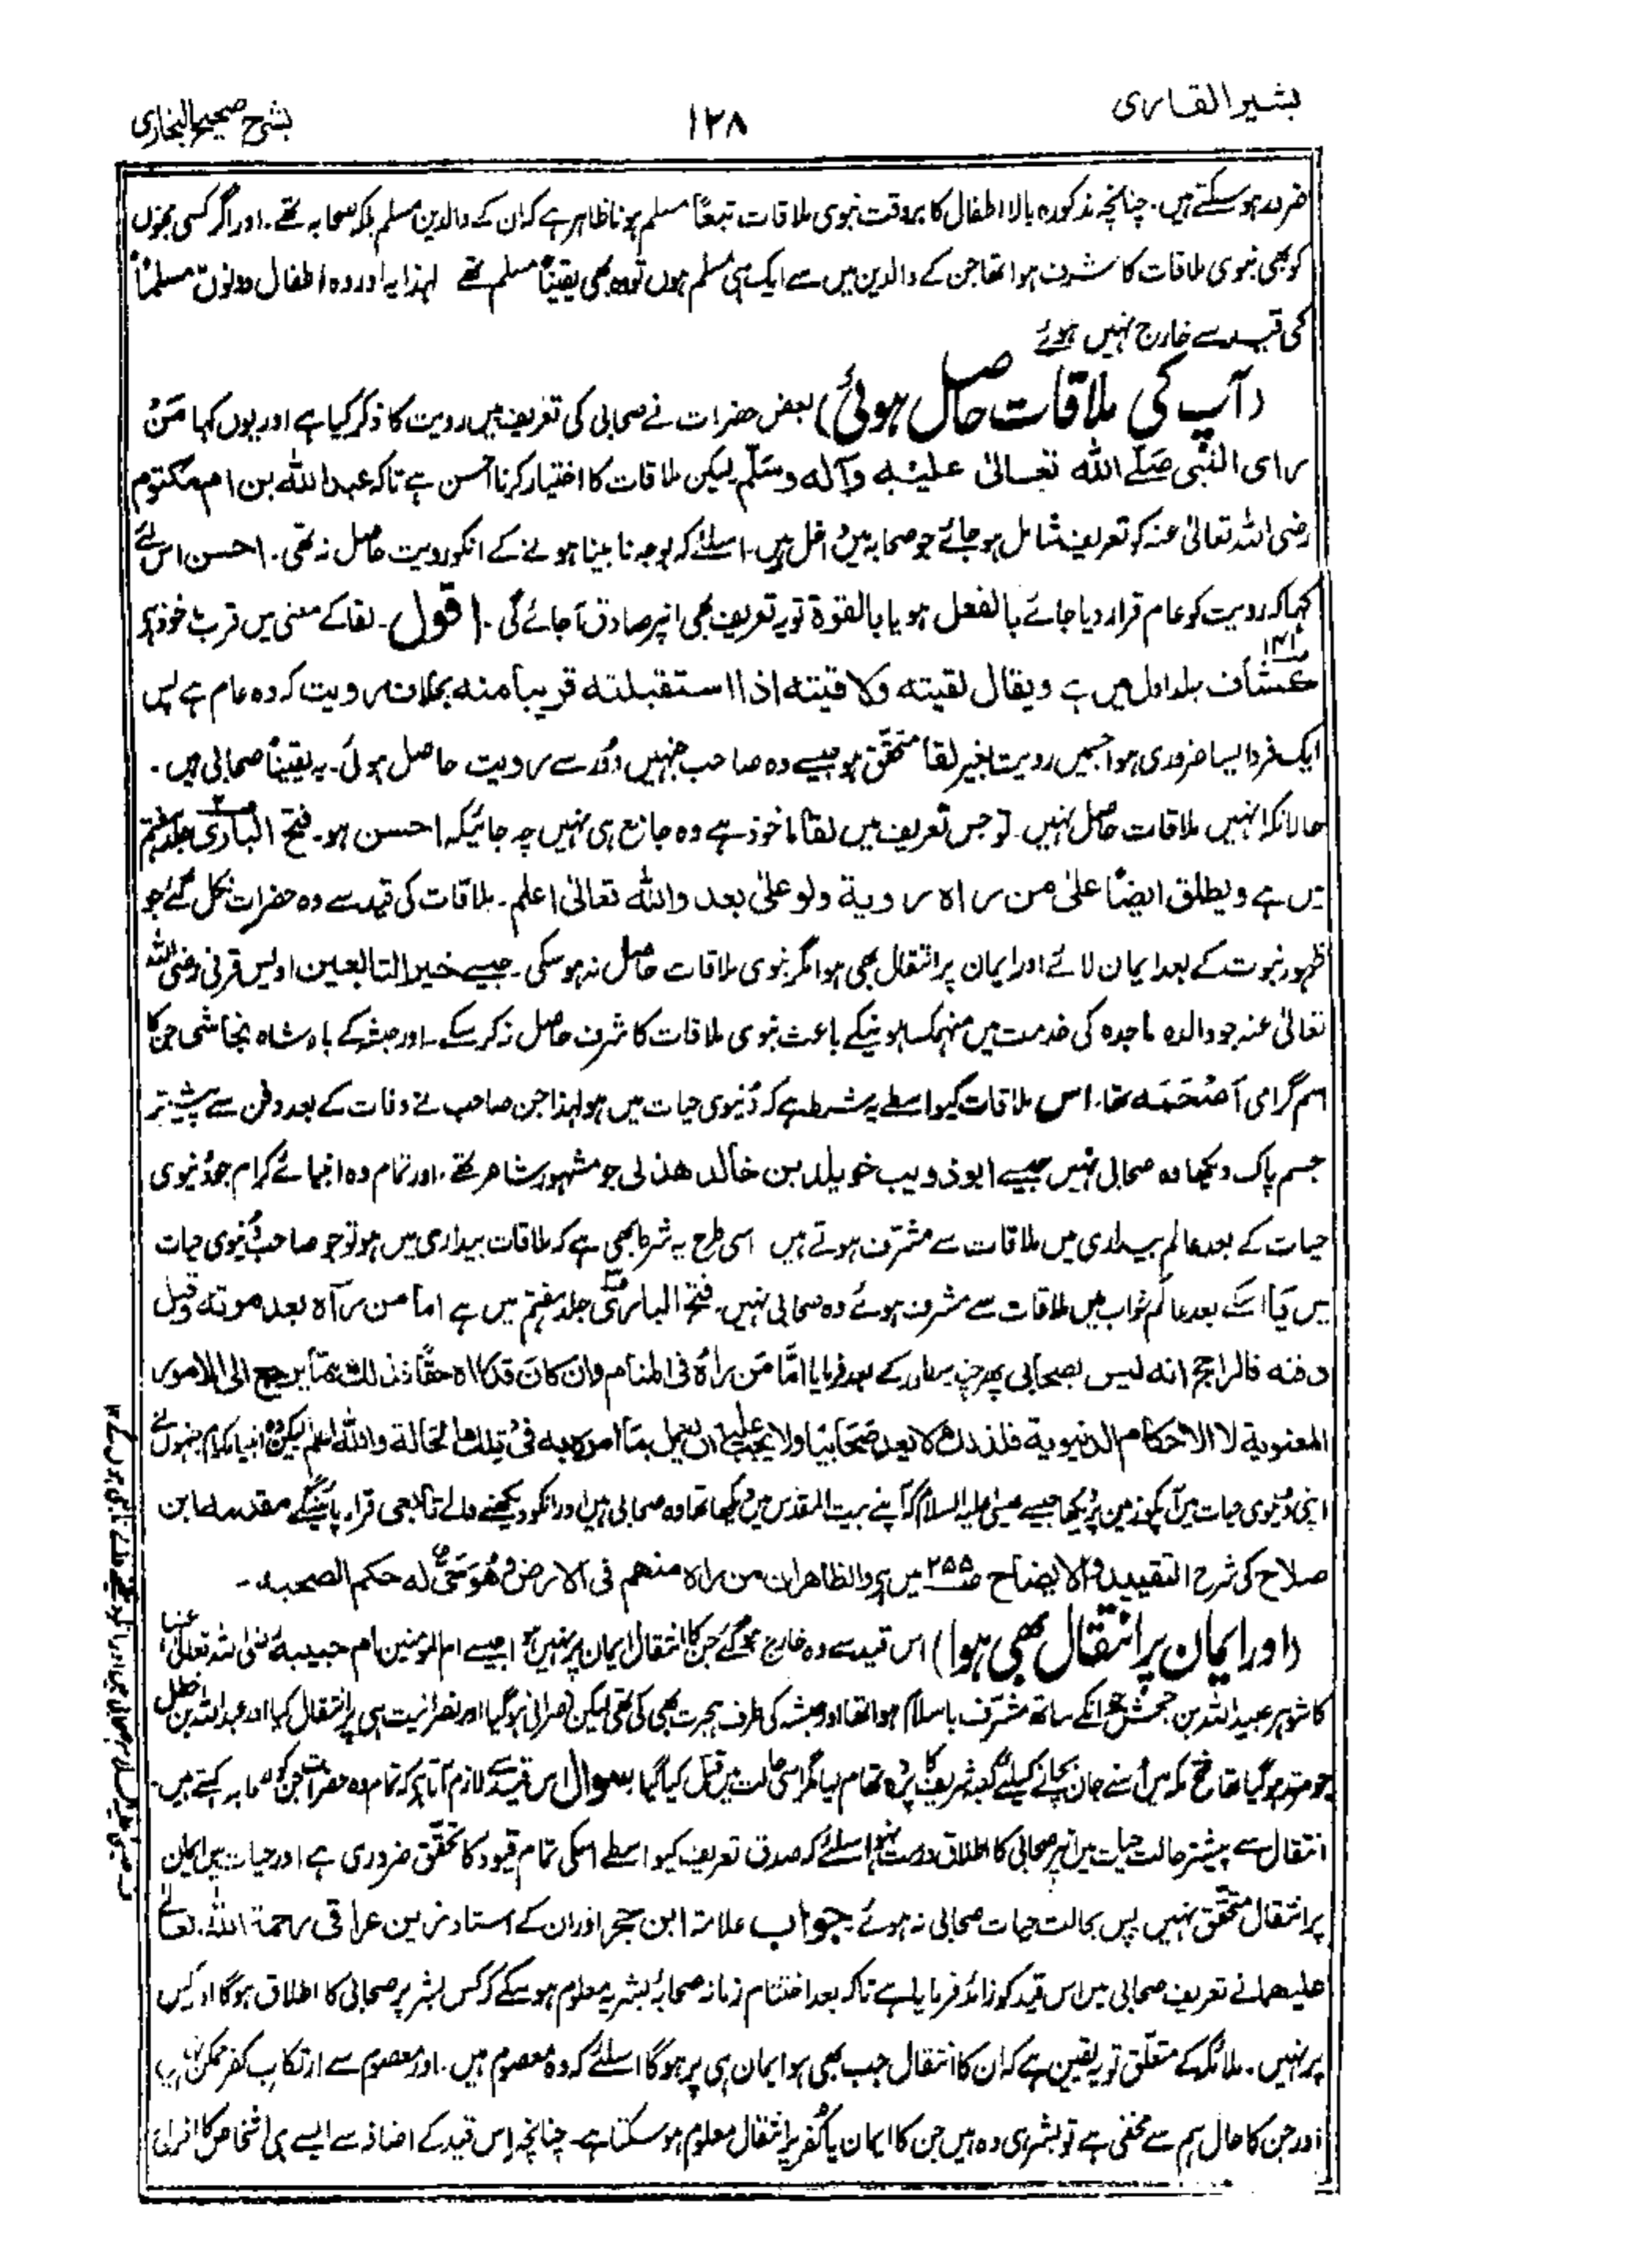 بشیر القاری
۱۲۸
بشرح صحیح البخاری
ضرور ہوسکتے ہیں۔ چنانچہ مذکورہ بالا اطفال کا بروقت نبوی ملاقات تبعاً مسلم ہونا ظاہر ہے کہ ان کے والدین مسلم بلکہ صحابہ تھے۔ اور اگر کسی مجنوں
کو بھی نبوی ملاقات کا شرف ہوا تھا جن کے والدین میں سے ایک ہی مسلم ہوں تو وہ بھی یقیناً مسلم تھے لہذا یہ اور وہ اطفال دونوں مسلماً
کی قید سے خارج نہیں ہوئے
(آپ کی ملاقات حاصل ہوئی) بعض حضرات نے صحابی کی تعریف میں رویت کا ذکر کیا ہے اور یوں کہا مَنْ
رای النبی صلے اللہ تعالیٰ علیہ وآلہ وسلم لیکن ملاقات کا اختیار کرنا احسن ہے تاکہ عبد اللہ بن ام مکتوم
رضی اللہ تعالیٰ عنہ کو تعریف شامل ہو جائے جو صحابہ میں داخل ہیں۔ اسلئے کہ بوجہ نابینا ہونے کے انکو رویت حاصل نہ تھی۔ احسن اس لئے
کہا کہ رویت کو عام قرار دیا جائے بالفعل ہو یا بالقوۃ تو یہ تعریف بھی انپر صادق آجائے گی۔ اقول۔ لقا کے معنی میں قرب ماخوذ ہے
کشاف جلد اول میں ہے ویقال لقیته ولاقیته اذا استقبلته قریبا منه بخلاف رویت کہ وہ عام ہے پس
ایک فرد ایسا ضروری ہوا جسمیں رویت بغیر لقا متحقق ہو جیسے وہ صاحب جنہیں دور سے رویت حاصل ہوئی۔ یہ یقیناً صحابی ہیں۔
حالانکہ انہیں ملاقات حاصل نہیں۔ تو جس تعریف میں لقا ماخوذ ہے وہ جامع ہی نہیں چہ جائیکہ احسن ہو۔ فتح الباری جلد ہفتم
میں ہے ویطلق ایضاً علیٰ من راہ رویة ولو علیٰ بعد واللہ تعالیٰ اعلم۔ ملاقات کی قید سے وہ حضرات نکل گئے جو
ظہور نبوت کے بعد ایمان لائے اور ایمان پر انتقال بھی ہوا مگر نبوی ملاقات حاصل نہ ہوسکی۔ جیسے خیر التابعین اویس قرنی رضی اللہ
تعالیٰ عنہ جو والدہ ماجدہ کی خدمت میں منہمک ہونیکے باعث نبوی ملاقات کا شرف حاصل نہ کر سکے۔ اور حبشہ کے بادشاہ نجاشی جن کا
اسم گرامی اَصْحَمَہ تھا۔ اس ملاقات کیواسطے یہ شرط ہے کہ دُنیوی حیات میں ہو لہذا جن صاحب نے وفات کے بعد دفن سے پیشتر
جسم پاک دیکھا وہ صحابی نہیں جیسے ابو ذویب خویلد بن خالد ھذلی جو مشہور شاعر تھے۔ اور تمام وہ انبیائے کرام جو دُنیوی
حیات کے بعد عالم بیداری میں ملاقات سے مشرف ہوتے ہیں اسی طرح یہ شرط بھی ہے کہ ملاقات بیداری میں ہو تو جو صاحب دُنیوی حیات
میں یا اسکے بعد عالم خواب میں ملاقات سے مشرف ہوئے وہ صحابی نہیں۔ فتح الباری جلد ہفتم میں ہے اما من رآہ بعد موته وقبل
دفنه فالراجح انه لیس بصحابی پھر چند سطور کے بعد فرمایا امّا مَن راٰہ فی المنام وان کان قد راٰہ حقًّا فذلك مما یرجع الی الامور
المعنویة لا الاحکام الدنیویة فلذلك لا یعد صحابیا ولا یجب علیه ان یعمل بما امره به فی تلك الحالة واللہ اعلم لیکن وہ انبیاء کرام جنہوں نے
اپنی دُنیوی حیات میں آپکو زمین پر دیکھا جیسے عیسیٰ علیہ السلام کہ آپنے بیت المقدس میں دیکھا تھا وہ صحابی ہیں اور انکو دیکھنے والے تابعی قرار پائینگے مقدمہ ابن
صلاح کی شرح التقیید والایضاح ص۲۵۵ میں ہے والظاهر ان من راہ منهم فی الارض وهو حیّ له حکم الصحبه۔
(اور ایمان پر انتقال بھی ہوا) اس قید سے وہ خارج ہوگئے جن کا انتقال ایمان پر نہیں ہوا جیسے ام المومنین ام حبیبہ رضی اللہ تعالیٰ عنہا
کا شوہر عبید اللہ بن جحش جو انکے ساتھ مشرف باسلام ہوا تھا اور حبشہ کی طرف ہجرت بھی کی تھی لیکن نصرانی ہوگیا اور نصرانیت ہی پر انتقال کیا اور عبد اللہ بن خطل
جو مرتد ہوگیا تھا فتح مکہ میں اُسنے جان بچانے کیلئے کعبہ شریف کا پردہ تھام لیا مگر اسی حالت میں قتل کیا گیا سوال اس قید سے لازم آتا ہے کہ تمام وہ حضرات جن کو صحابہ کہتے ہیں۔
انتقال سے پیشتر حالت حیات میں انپر صحابی کا اطلاق درست نہ ہو اسلئے کہ صدق تعریف کیواسطے اسکی تمام قیود کا تحقق ضروری ہے اور حیات میں ایمان
پر انتقال متحقق نہیں پس بحالت حیات صحابی نہ ہوئے جواب علامہ ابن حجر اور ان کے استاد زین عراقی رحمة اللہ تعالیٰ
علیھما نے تعریف صحابی میں اس قید کو زائد فرمایا ہے تاکہ بعد اختتام زمانہ صحابۂ بشر یہ معلوم ہوسکے کہ کس بشر پر صحابی کا اطلاق ہوگا اور کس
پر نہیں۔ ملائکہ کے متعلق تو یقین ہے کہ ان کا انتقال جب بھی ہوا ایمان ہی پر ہوگا اسلئے کہ وہ معصوم ہیں۔ اور معصوم سے ارتکاب کفر ممکن نہیں
اور جن کا حال ہم سے مخفی ہے تو بشر ہی وہ ہیں جن کا ایمان یا کفر پر انتقال معلوم ہو سکتا ہے۔ چنانچہ اِس قید کے اضافہ سے ایسے ہی اشخاص کا اخراج